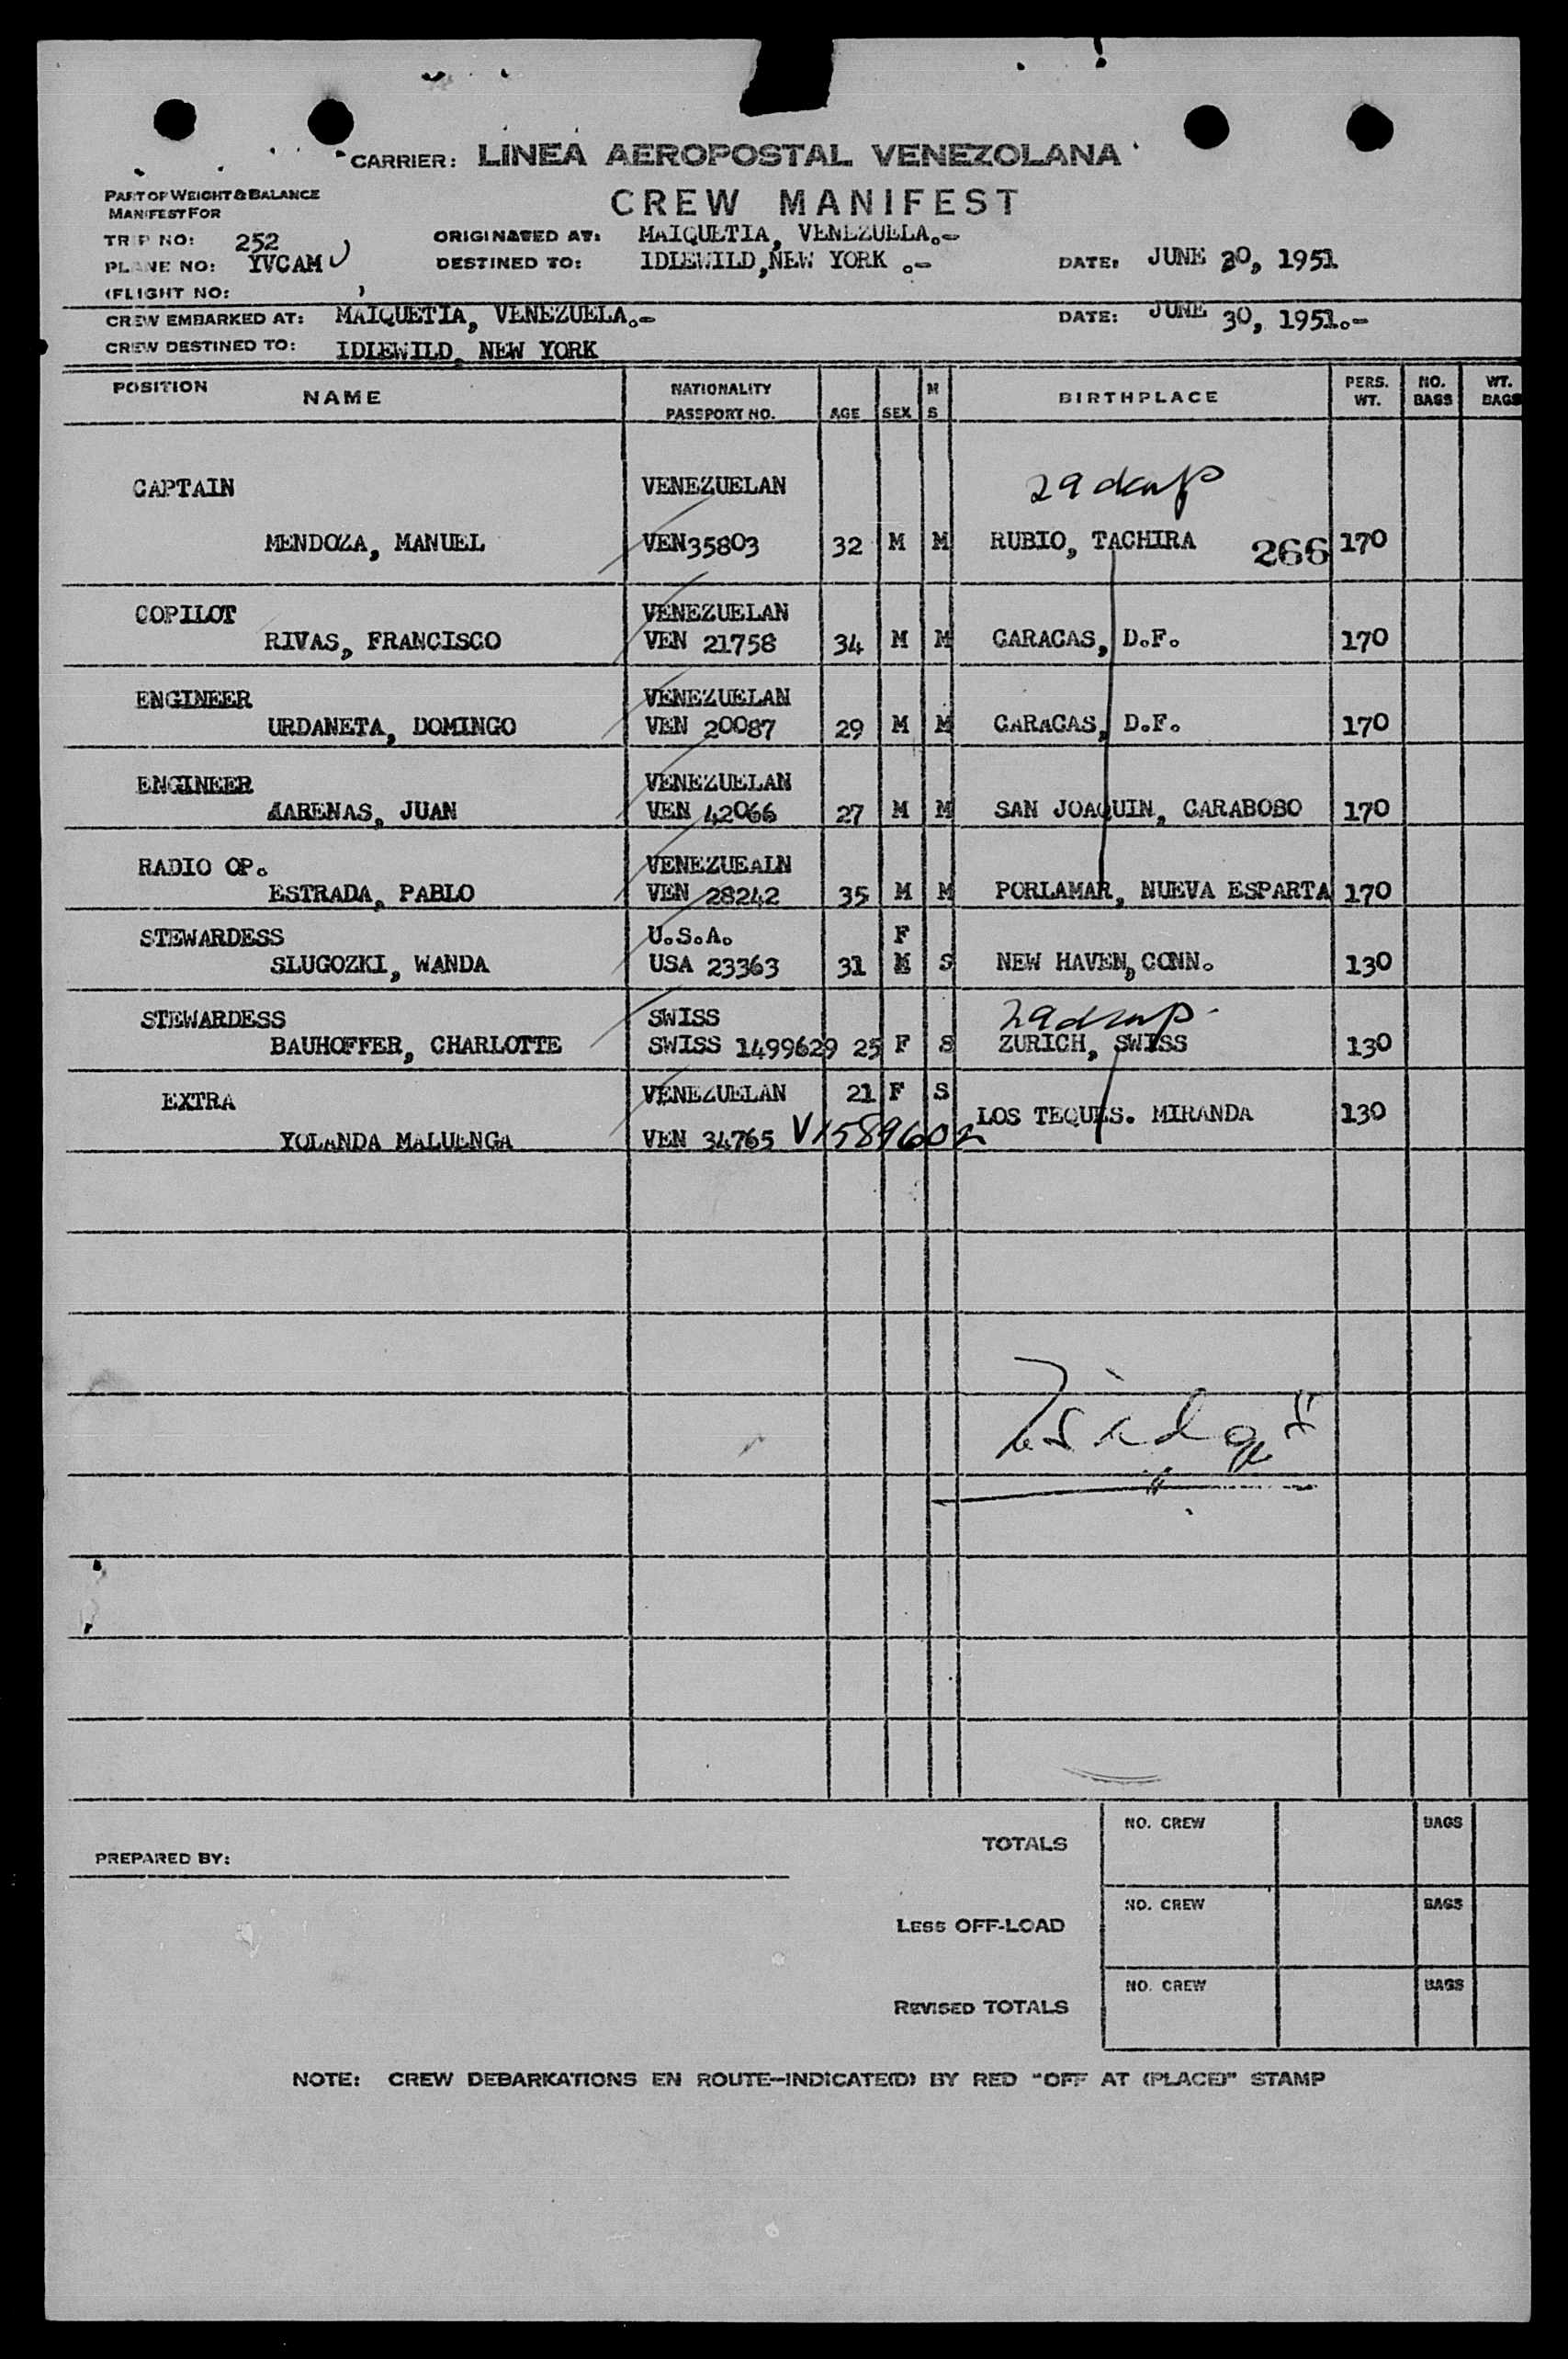 CARRIER: LINEA AEROPOSTAL VENEZOLANA
CREW MANIFEST
PART OF WEIGHT & BALANCE
MANIFEST FOR
TRIP NO: 252 ORIGINATED AT: MAIQUETIA, VENEZUELA.-
PLANE NO: YVCAM DESTINED TO: IDLEWILD, NEW YORK .- DATE: JUNE 30, 1951
(FLIGHT NO: )
CREW EMBARKED AT: MAIQUETIA, VENEZUELA.- DATE: JUNE 30, 1951.-
CREW DESTINED TO: IDLEWILD, NEW YORK
POSITION NAME NATIONALITY PASSPORT NO. AGE SEX M S BIRTHPLACE PERS. WT. NO. BAGS WT. BAGS
CAPTAIN VENEZUELAN
MENDOZA, MANUEL VEN35803 32 M M RUBIO, TACHIRA 266 170
COPILOT VENEZUELAN
RIVAS, FRANCISCO VEN 21758 34 M M CARACAS, D.F. 170
ENGINEER VENEZUELAN
URDANETA, DOMINGO VEN 20087 29 M M CARACAS, D.F. 170
ENGINEER VENEZUELAN
AARENAS, JUAN VEN 42066 27 M M SAN JOAQUIN, CARABOBO 170
RADIO OP. VENEZUEALN
ESTRADA, PABLO VEN 28242 35 M M PORLAMAR, NUEVA ESPARTA 170
STEWARDESS U.S.A. F
SLUGOZKI, WANDA USA 23363 31 M S NEW HAVEN, CONN. 130
STEWARDESS SWISS
BAUHOFFER, CHARLOTTE SWISS 1499629 25 F S ZURICH, SWISS 130
EXTRA VENEZUELAN 21 F S
LOS TEQUES. MIRANDA 130
YOLANDA MALUENGA VEN 34765 V1589602
TOTALS NO. CREW BAGS
PREPARED BY:
LESS OFF-LOAD NO. CREW BAGS
REVISED TOTALS NO. CREW BAGS
NOTE: CREW DEBARKATIONS EN ROUTE—INDICATE(D) BY RED "OFF AT (PLACE)" STAMP